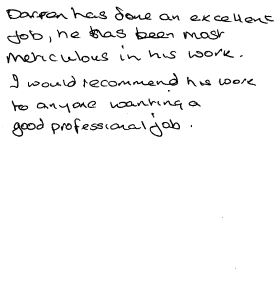 Darren has done an excellent
job, he has been most
meticulous in his work.
I would recommend his work
to anyone wanting a
good professional job.